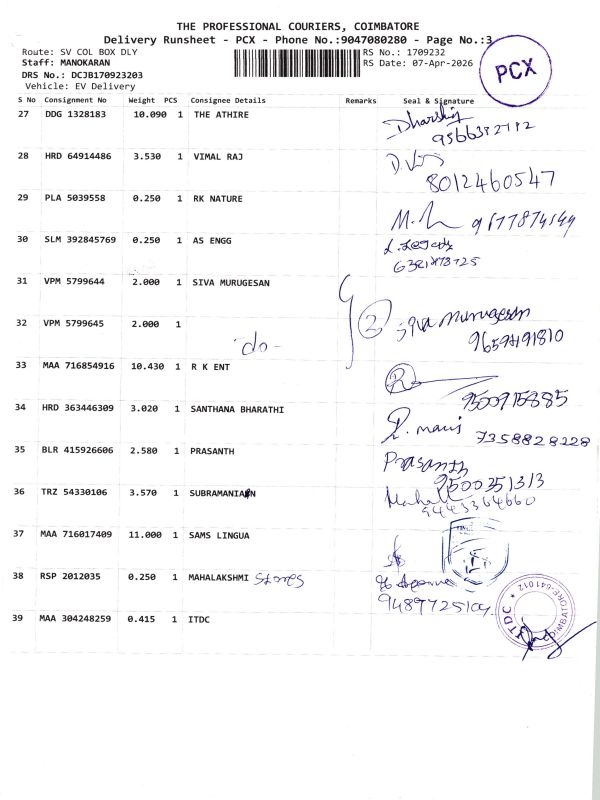 THE PROFESSIONAL COURIERS, COIMBATORE
Delivery Runsheet - PCX - Phone No.:9047080280 - Page No.:3
Route: SV COL BOX DLY
RS No.: 1709232
Staff: MANOKARAN
RS Date: 07-Apr-2026
DRS No.: DCJB170923203
Vehicle: EV Delivery
PCX
S No Consignment No Weight PCS Consignee Details Remarks Seal & Signature
27 DDG 1328183 10.090 1 THE ATHIRE
28 HRD 64914486 3.530 1 VIMAL RAJ
8012460547
29 PLA 5039558 0.250 1 RK NATURE
30 SLM 392845769 0.250 1 AS ENGG
31 VPM 5799644 2.000 1 SIVA MURUGESAN
32 VPM 5799645 2.000 1
-do-
2 siva murugesan
33 MAA 716854916 10.430 1 R K ENT
9500915885
34 HRD 363446309 3.020 1 SANTHANA BHARATHI
7358828228
35 BLR 415926606 2.580 1 PRASANTH Prasanth
9500351313
36 TRZ 54330106 3.570 1 SUBRAMANIAN
9443364660
37 MAA 716017409 11.000 1 SAMS LINGUA
38 RSP 2012035 0.250 1 MAHALAKSHMI Stores
39 MAA 304248259 0.415 1 ITDC
ITDC COIMBATORE-641012